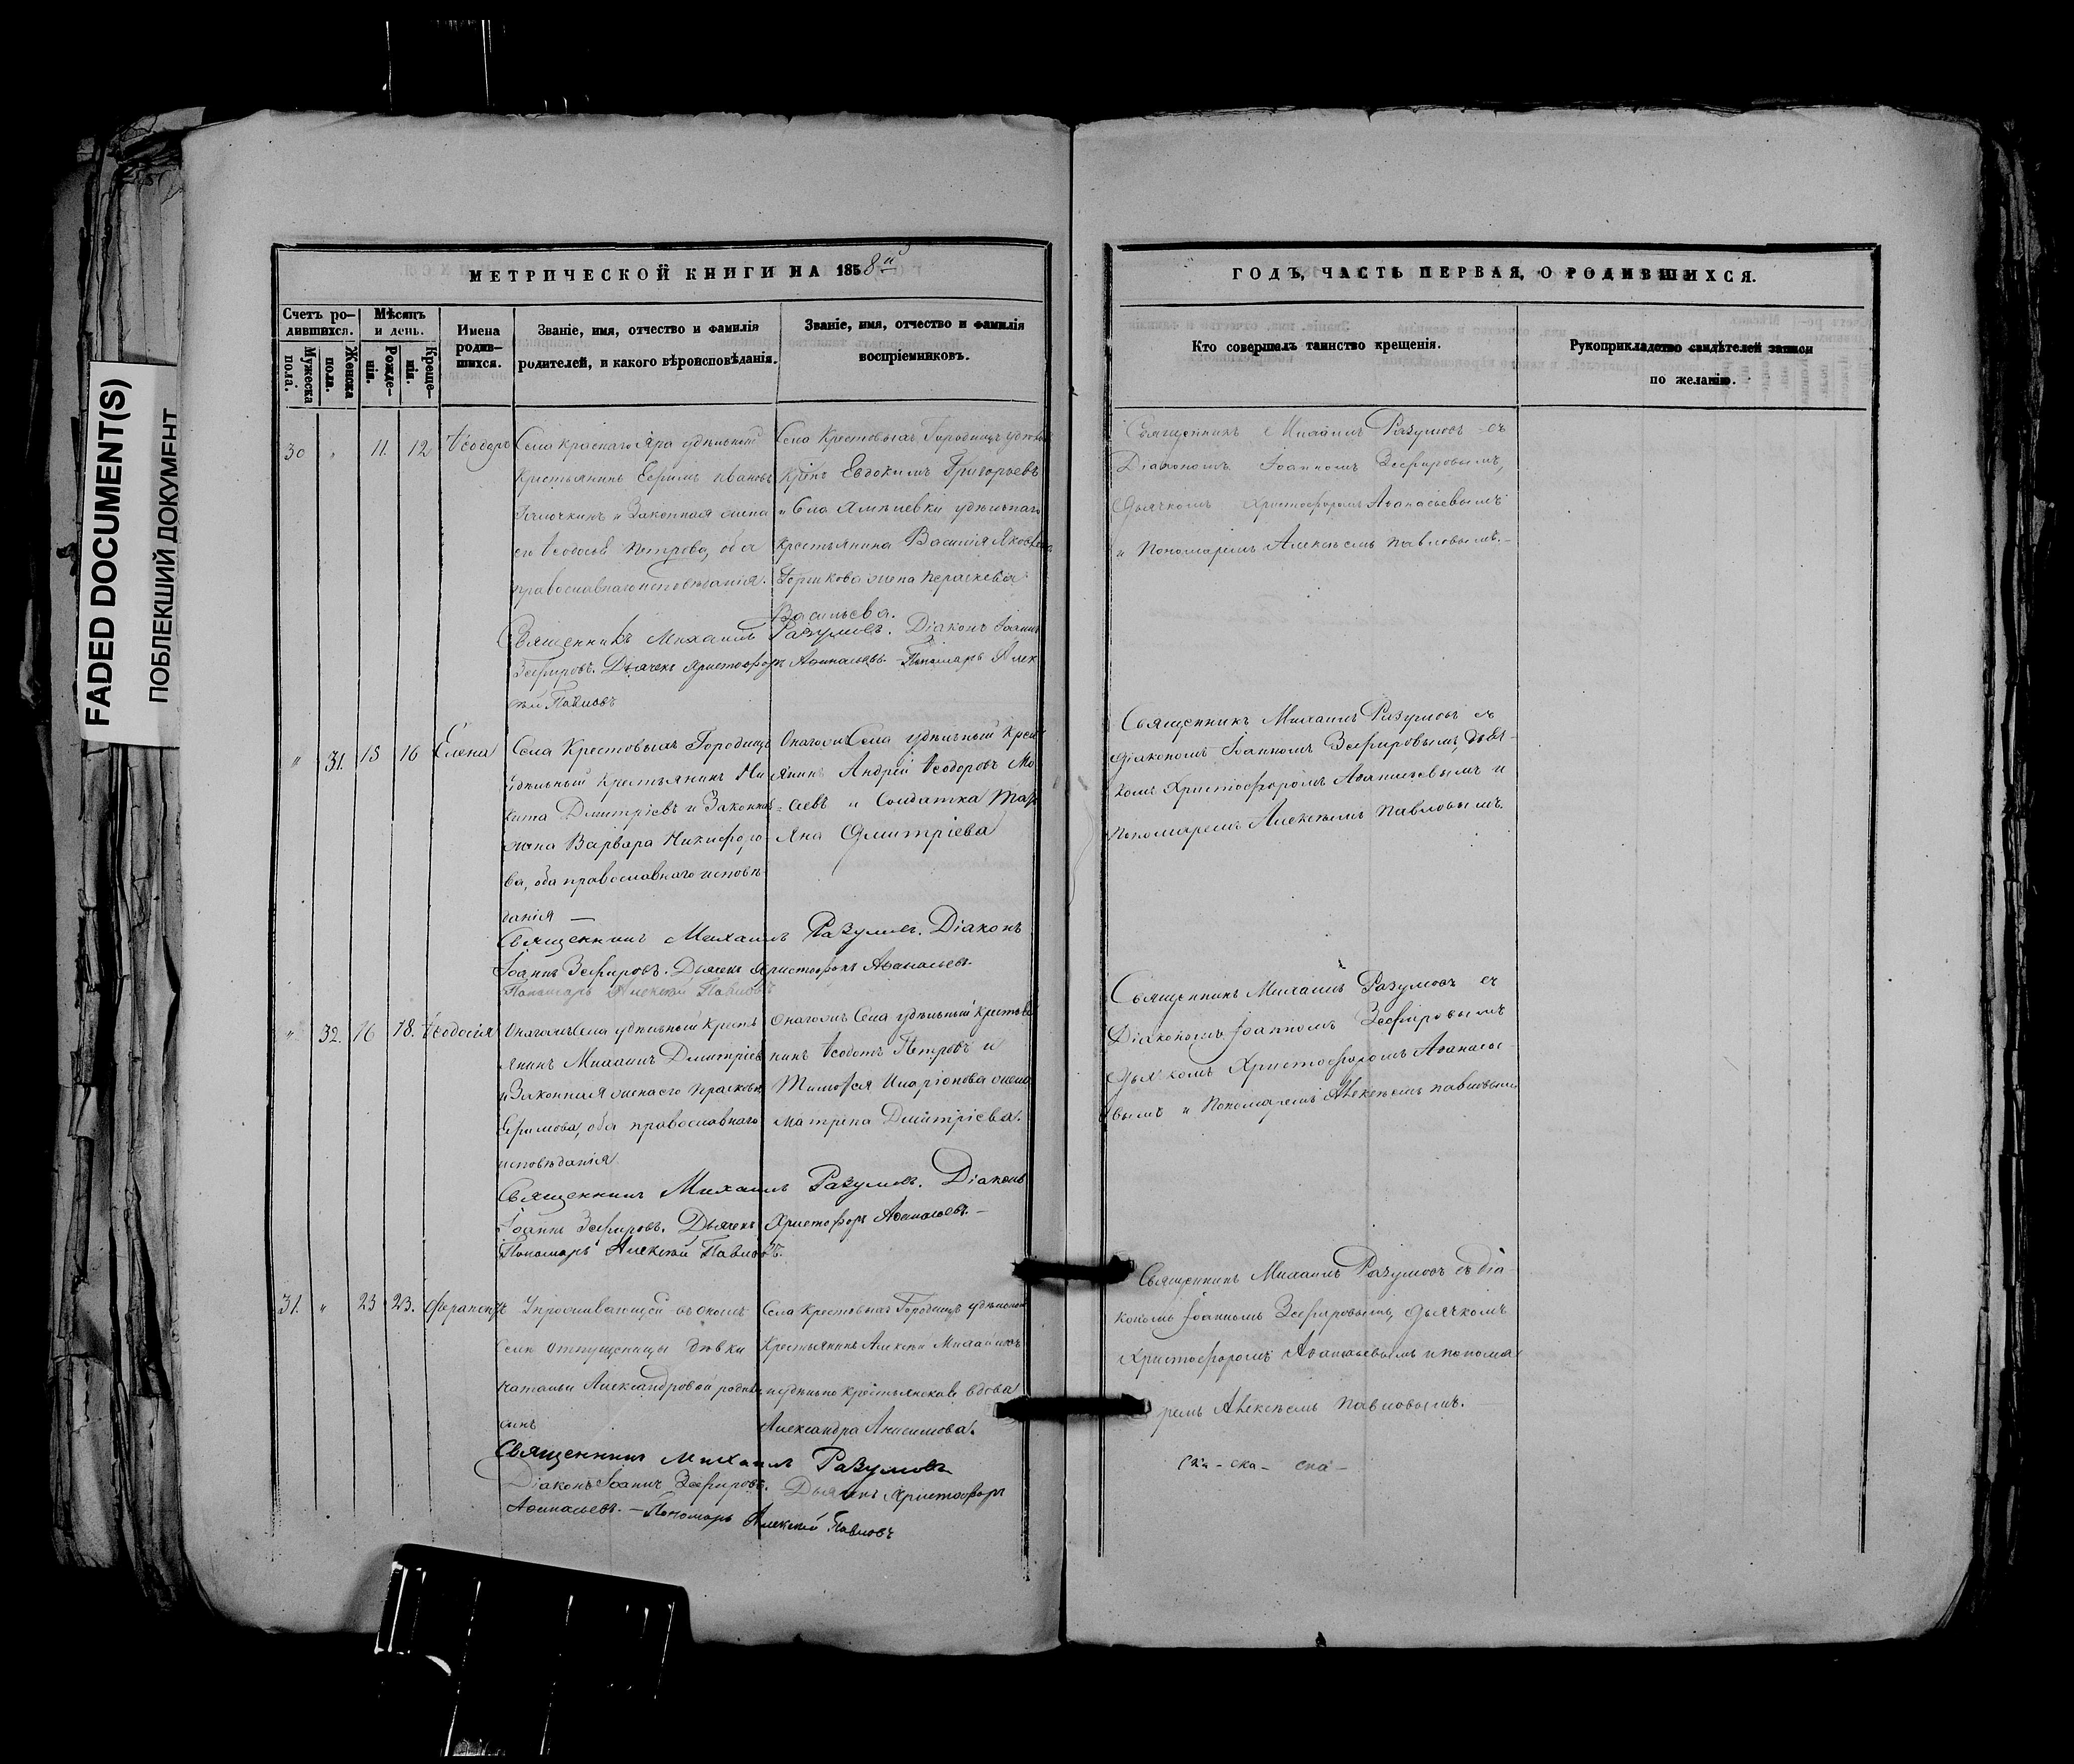 FADED DOCUMENT(S)
ПОБЛЕКШИЙ ДОКУМЕНТ
МЕТРИЧЕСКОЙ КНИГИ НА 1858й
Счетъ ро-
дившихся.
Мужеска
пола.
Женска
пола.
Мѣсяцъ
и день.
Рожде-
нія.
Креще-
нія.
Имена
родив-
шихся.
Званіе, имя, отчество и фамилія
родителей, и какого вѣроисповѣданія.
Званіе, имя, отчество и фамилія
воспріемниковъ.
30 " 11. 12 Ѳеодоръ
Села Краснаго Яра удѣльный
Крестьянинъ Ефимъ Ивановъ
и Законная жена
его Ѳеодосья Петрова, оба
православнаго исповѣданія.
Села Крестовыхъ Городищъ
Евдокимъ Григорьевъ
и Села удѣльнаго
Крестьянина Василія Яковлева
Горшкова жена Параскевія
Васильева.
Священникъ Михаилъ Разумовъ. Діаконъ Іоаннъ
Зефировъ. Дьячекъ Христофоръ Аѳанасьевъ. Пономарь Алек
сѣй Павловъ
" 31. 15 16 Елена
Села Крестовыхъ Городищъ
удѣльный Крестьянинъ Ни
кита Дмитріевъ и Законная
жена Варвара Никифоро-
ва, оба православнаго исповѣ-
данія —
Онагожъ Села удѣльный Крест
янинъ Андрей Ѳеодоровъ Мо
и Солдатка
Дмитріева
Священникъ Михаилъ Разумовъ. Діаконъ
Іоаннъ Зефировъ. Дьячекъ Христофоръ Аѳанасьевъ
Пономарь Алексѣй Павловъ
" 32. 16 18. Ѳеодосія
Онагожъ Села удѣльный Кресть
янинъ Михаилъ Дмитріевъ
и Законная жена его Парасковья
Ефимова, оба православнаго
исповѣданія
Онагожъ Села удѣльный Крестья
нинъ Ѳеодотъ Петровъ и
Тимофея Иларіонова жена
Матрена Дмитріева.
Священникъ Михаилъ Разумовъ. Діаконъ
Іоаннъ Зефировъ. Дьячекъ Христофоръ Аѳанасьевъ. —
Пономарь Алексѣй Павловъ.
31. " 23 23. Ферапонтъ
У проживающей въ ономъ
Селѣ отпущеницы дѣвки
Натальи Александровой
сынъ
Села Крестовыхъ Городищъ удѣльный
Крестьянинъ Алексѣй
и удѣльно крестьянская вдова
Александра Анисимова.
Священникъ Михаилъ Разумовъ
Діаконъ Іоаннъ Зефировъ. Дьячекъ Христофоръ
Аѳанасьевъ. — Пономарь Алексѣй Павловъ
ГОДЪ, ЧАСТЬ ПЕРВАЯ, О РОДИВШИХСЯ.
Кто совершалъ таинство крещенія.
Рукоприкладство свидѣтелей записи
по желанію.
Священникъ Михаилъ Разумовъ съ
Діакономъ Іоанномъ Зефировымъ,
Дьячкомъ Христофоромъ Аѳанасьевымъ
и Пономаремъ Алексѣемъ Павловымъ. —
Священникъ Михаилъ Разумовъ съ
Діакономъ Іоанномъ Зефировымъ, Дьяч-
комъ Христофоромъ Аѳанасьевымъ и
Пономаремъ Алексѣемъ Павловымъ.
Священникъ Михаилъ Разумовъ съ
Діакономъ Іоанномъ Зефировымъ
Дьячкомъ Христофоромъ Аѳанасье-
вымъ и Пономаремъ Алексѣемъ Павловымъ
Священникъ Михаилъ Разумовъ съ Діа-
кономъ Іоанномъ Зефировымъ, Дьячкомъ
Христофоромъ Аѳанасьевымъ и понома
ремъ Алексѣемъ Павловымъ.